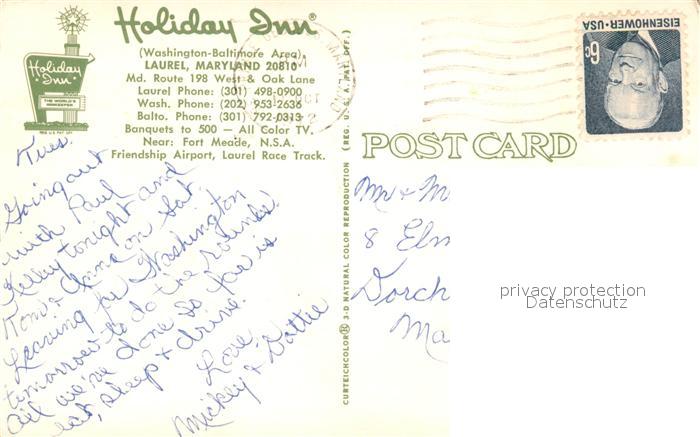 Holiday Inn®
(Washington-Baltimore Area)
LAUREL, MARYLAND 20810
Md. Route 198 West & Oak Lane
Laurel Phone: (301) 498-0900
Wash. Phone: (202) 953-2636
Balto. Phone: (301) 792-0313
Banquets to 500 — All Color TV.
Near: Fort Meade, N.S.A.
Friendship Airport, Laurel Race Track.
Holiday Inn®
THE WORLD'S INNKEEPER
REG. U.S. PAT. OFF.
Tues.
Going out
with Paul
Kelley tonight and
Tom & Anna on Sat.
Leaving for Washington
tomorrow to do the rounds.
All we've done so far is
eat, sleep & drive.
Love
Mickey & Dottie
CURTEICHCOLOR® 3-D NATURAL COLOR REPRODUCTION (REG. U.S.A. PAT. OFF.)
POST CARD
EISENHOWER·USA
6c
OCT
Mr & M
8 Elm
Dorch
Ma
privacy protection
Datenschutz